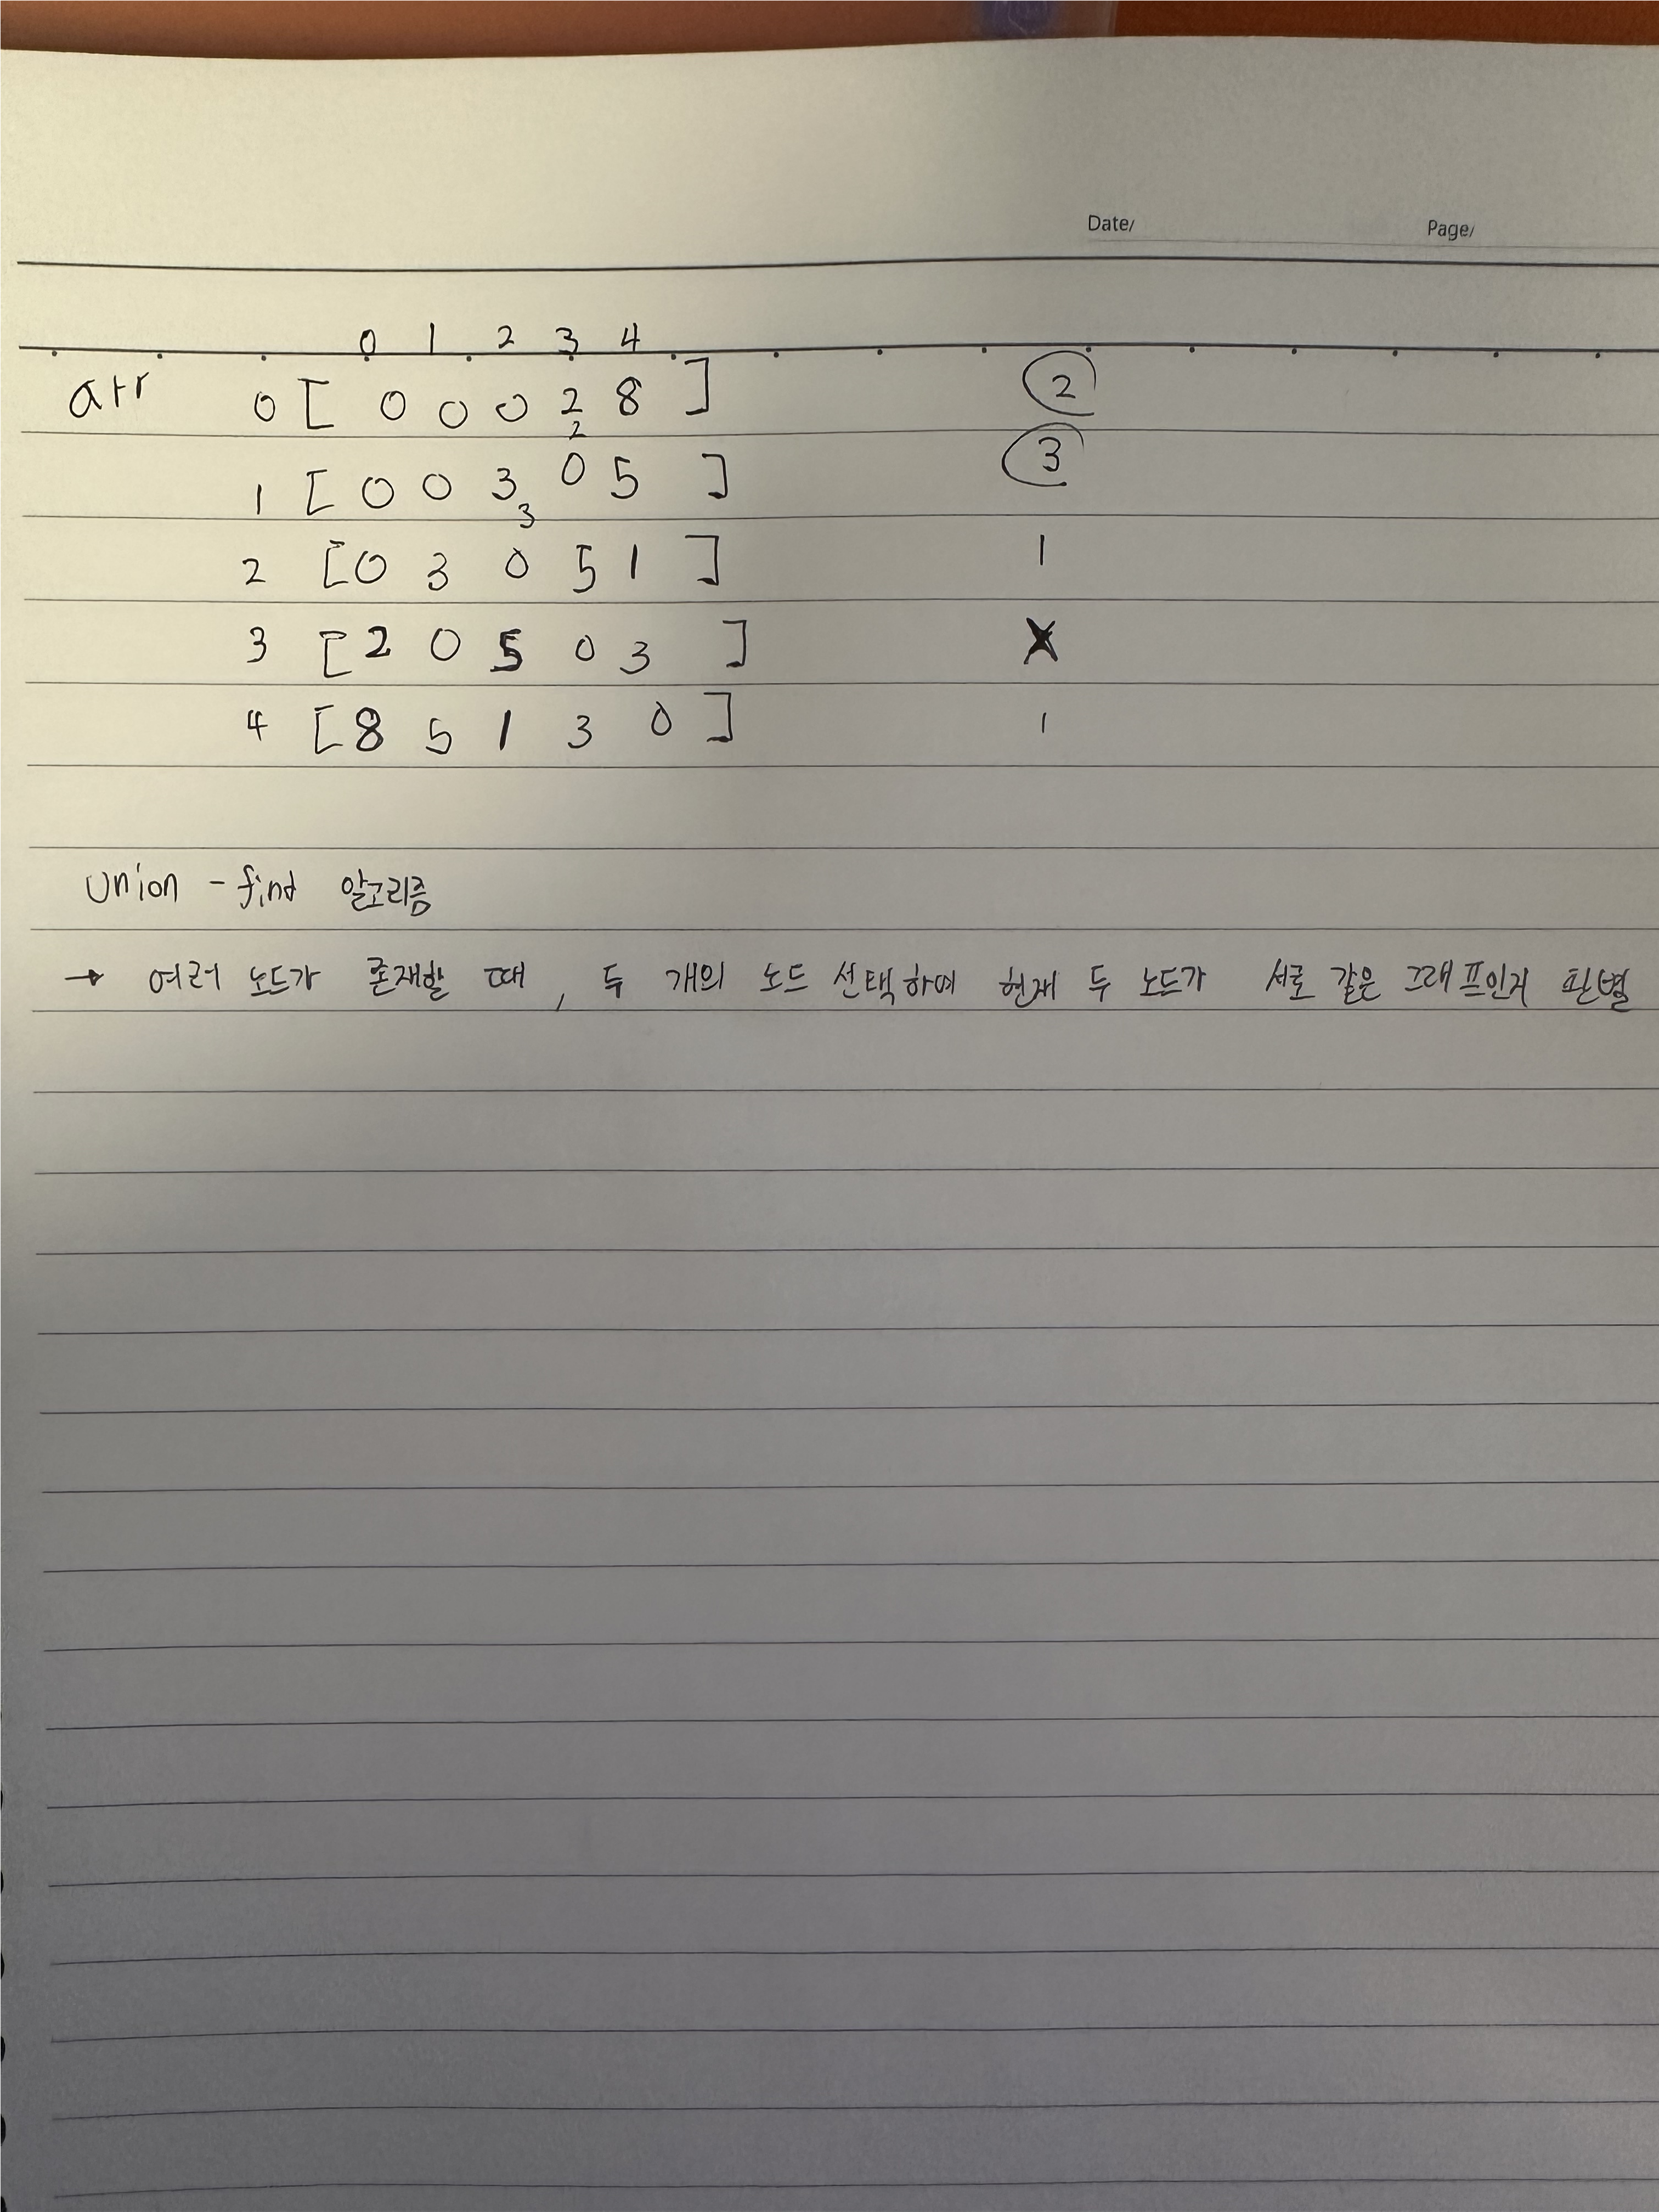 Date/ Page/
0 1 2 3 4
arr 0 [ 0 0 0 2 8 ] 2
2
1 [ 0 0 3 0 5 ] 3
3
2 [ 0 3 0 5 1 ] 1
3 [ 2 0 5 0 3 ] X
4 [ 8 5 1 3 0 ] 1
Union - find 알고리즘
→ 여러 노드가 존재할 때, 두 개의 노드 선택하여 현재 두 노드가 서로 같은 그래프인지 판별